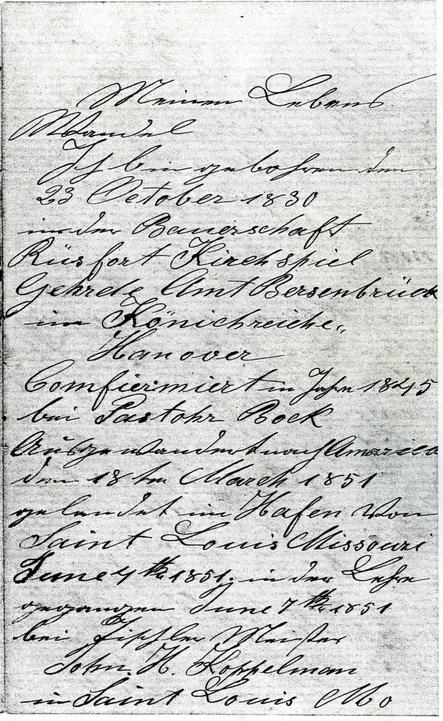 Meinen Lebens
Wandel
Ich bin gebohren den
23 October 1830
in der Bauerschaft
Rüsfort Kirchspiel
Gehrde Amt Bersenbrück
im Könichreiche
Hanover
Comfiermiert in Jahre 1845
bei Pastohr Bock
Ausgewandert nach America
den 18ten March 1851
gelandet im Hafen von
Saint Louis Missouri
June 4th 1851, in der Lehre
gegangen June 7th 1851
bei Tischler Meister
John. H. Koppelman
in Saint Louis Mo